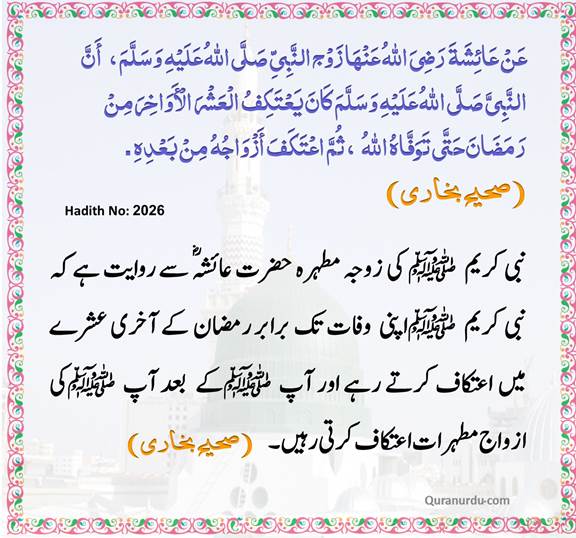 عَنْ عَائِشَةَ رَضِیَ اللہُ عَنْھَا زَوْجِ النَّبِیِّ صَلَّی اللہُ عَلَیْہِ وَسَلَّمَ، أَنَّ
النَّبِیَّ صَلَّی اللہُ عَلَیْہِ وَسَلَّمَ کَانَ یَعْتَکِفُ الْعَشْرَ الْأَوَاخِرَ مِنْ
رَمَضَانَ حَتّٰی تَوَفَّاہُ اللہُ ، ثُمَّ اعْتَکَفَ أَزْوَاجُہُ مِنْ بَعْدِہِ.
(صحیح بخاری)
Hadith No: 2026
نبی کریم ﷺ کی زوجہ مطہرہ حضرت عائشہؓ سے روایت ہے کہ
نبی کریم ﷺ اپنی وفات تک برابر رمضان کے آخری عشرے
میں اعتکاف کرتے رہے اور آپ ﷺ کے بعد آپ ﷺ کی
ازواج مطہرات اعتکاف کرتی رہیں۔ (صحیح بخاری)
Quranurdu-com